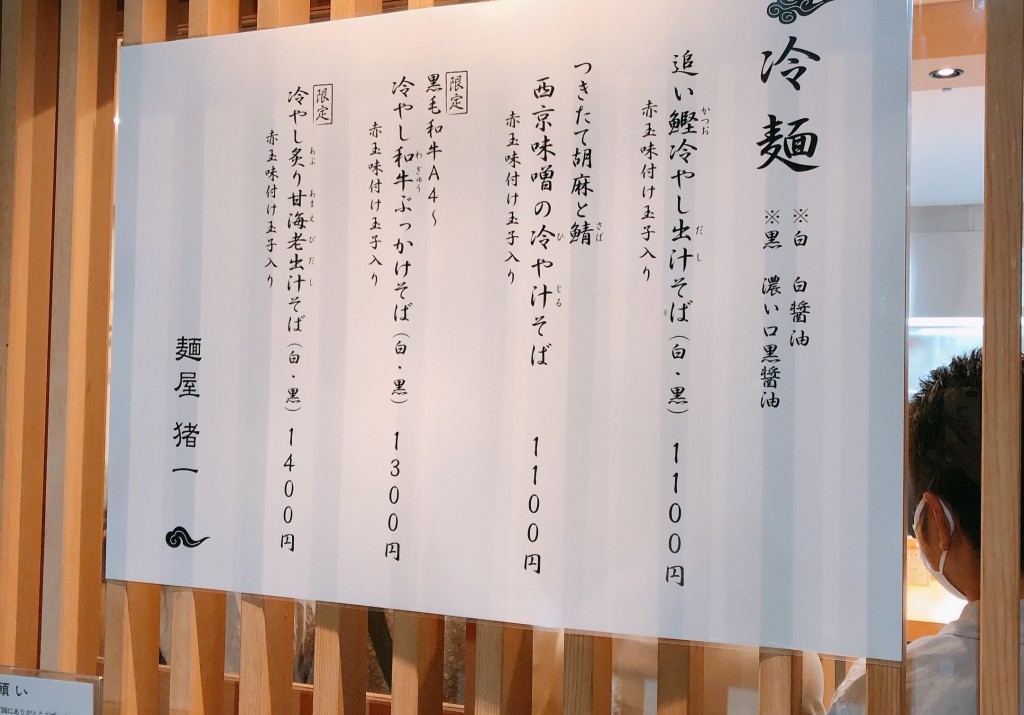 冷麺
※白 白醤油
※黒 濃い口黒醤油
追い鰹冷やし出汁そば(白・黒) 1100円
かつお
だし
赤玉味付け玉子入り
つきたて胡麻と鯖
さば
西京味噌の冷や汁そば 1100円
ひ
じる
赤玉味付け玉子入り
限定
黒毛和牛A4~
冷やし和牛ぶっかけそば(白・黒) 1300円
わぎゅう
赤玉味付け玉子入り
限定
冷やし炙り甘海老出汁そば(白・黒) 1400円
あぶ
あまえびだし
赤玉味付け玉子入り
麺屋 猪一
願い